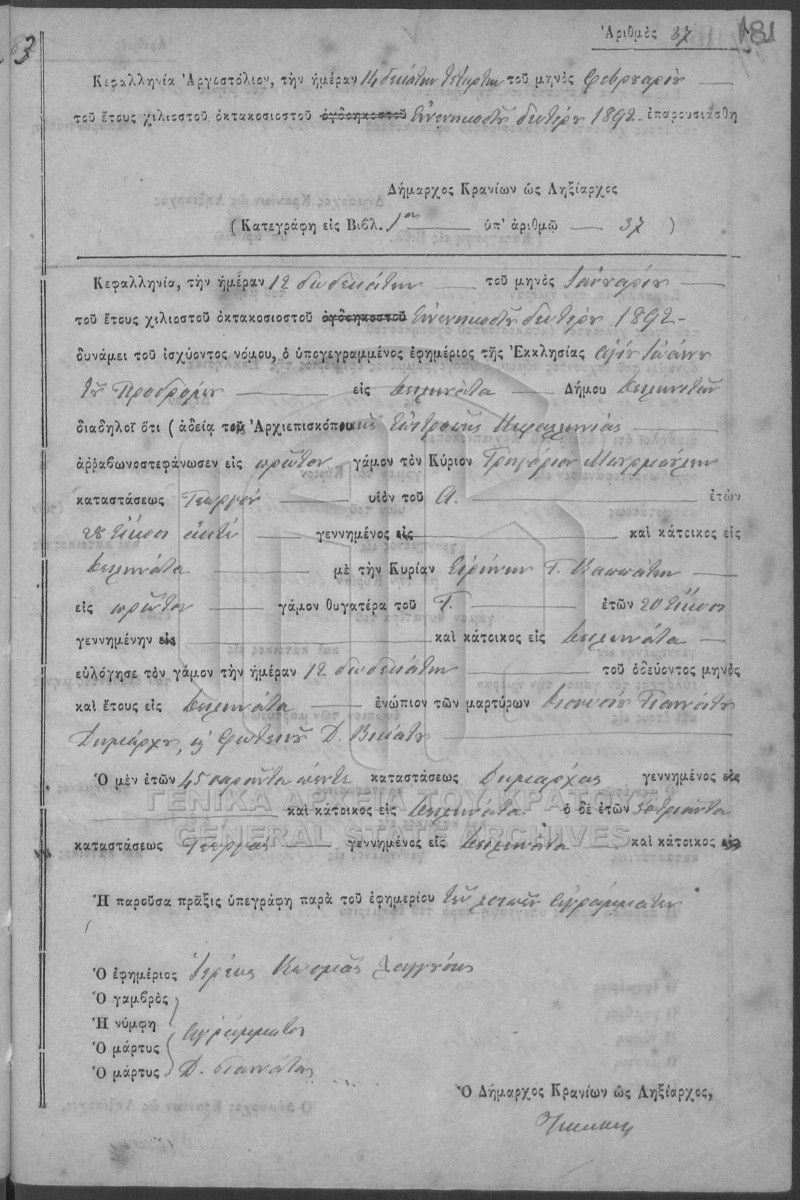 63
Ἀριθμὸς 37
181
Κεφαλληνία Ἀργοστόλιον, τὴν ἡμέραν 14 δεκάτην τετάρτην τοῦ μηνὸς Φεβρουαρίου
τοῦ ἔτους χιλιοστοῦ ὀκτακοσιοστοῦ ὀγδοηκοστοῦ ἐνενηκοστοῦ δευτέρου 1892 ἐπαρουσιάσθη
Δήμαρχος Κρανίων ὡς Ληξίαρχος
(Κατεγράφη εἰς Βιβλ. 1ον ὑπ' ἀριθμῷ 37)
Κεφαλληνία, τὴν ἡμέραν 12 δωδεκάτην τοῦ μηνὸς Ἰανουαρίου
τοῦ ἔτους χιλιοστοῦ ὀκτακοσιοστοῦ ὀγδοηκοστοῦ ἐνενηκοστοῦ δευτέρου 1892
δυνάμει τοῦ ἰσχύοντος νόμου, ὁ ὑπογεγραμμένος ἐφημέριος τῆς Ἐκκλησίας ἁγίου Ἰωάννου
τοῦ Προδρόμου εἰς Δειλινάτα Δήμου
διαδηλοῖ ὅτι (ἀδείᾳ τοῦ Ἀρχιεπισκόπου Ἐπιτροπῆς Κεφαλληνίας
ἀρραβωνοστεφάνωσεν εἰς πρῶτον γάμον τὸν Κύριον Γρηγόριον
καταστάσεως Γεωργοῦ υἱὸν τοῦ Α. ἐτῶν
28 εἴκοσι ὀκτώ γεννημένος εἰς καὶ κάτοικος εἰς
Δειλινάτα μὲ τὴν Κυρίαν Εἰρήνην Γ. Καππάτου
εἰς πρῶτον γάμον θυγατέρα τοῦ Γ. ἐτῶν 20 εἴκοσι
γεννημένην εἰς καὶ κάτοικος εἰς Δειλινάτα
εὐλόγησε τὸν γάμον τὴν ἡμέραν 12 δωδεκάτην τοῦ ὁδεύοντος μηνὸς
καὶ ἔτους εἰς Δειλινάτα ἐνώπιον τῶν μαρτύρων Διονυσίου Γιαννάτου
Δημάρχου, Φωτεινοῦ Δ.
Ὁ μὲν ἐτῶν 45 σαράντα πέντε καταστάσεως Δημάρχος γεννημένος εἰς
καὶ κάτοικος εἰς Δειλινάτα ὁ δὲ ἐτῶν 30 τριάντα
καταστάσεως Γεωργὸς γεννημένος εἰς Δειλινάτα καὶ κάτοικος εἰς
ΓΕΝΙΚΑ ΑΡΧΕΙΑ ΤΟΥ ΚΡΑΤΟΥΣ
GENERAL STATE ARCHIVES
Ἡ παροῦσα πρᾶξις ὑπεγράφη παρὰ τοῦ ἐφημερίου τῶν λοιπῶν ἀγραμμάτων
Ὁ ἐφημέριος Ἱερεὺς Κοσμᾶς
Ὁ γαμβρὸς
Ἡ νύμφη
ἀγράμματοι
Ὁ μάρτυς
Ὁ μάρτυς Δ. Γιαννάτος
Ὁ Δήμαρχος Κρανίων ὡς Ληξίαρχος,